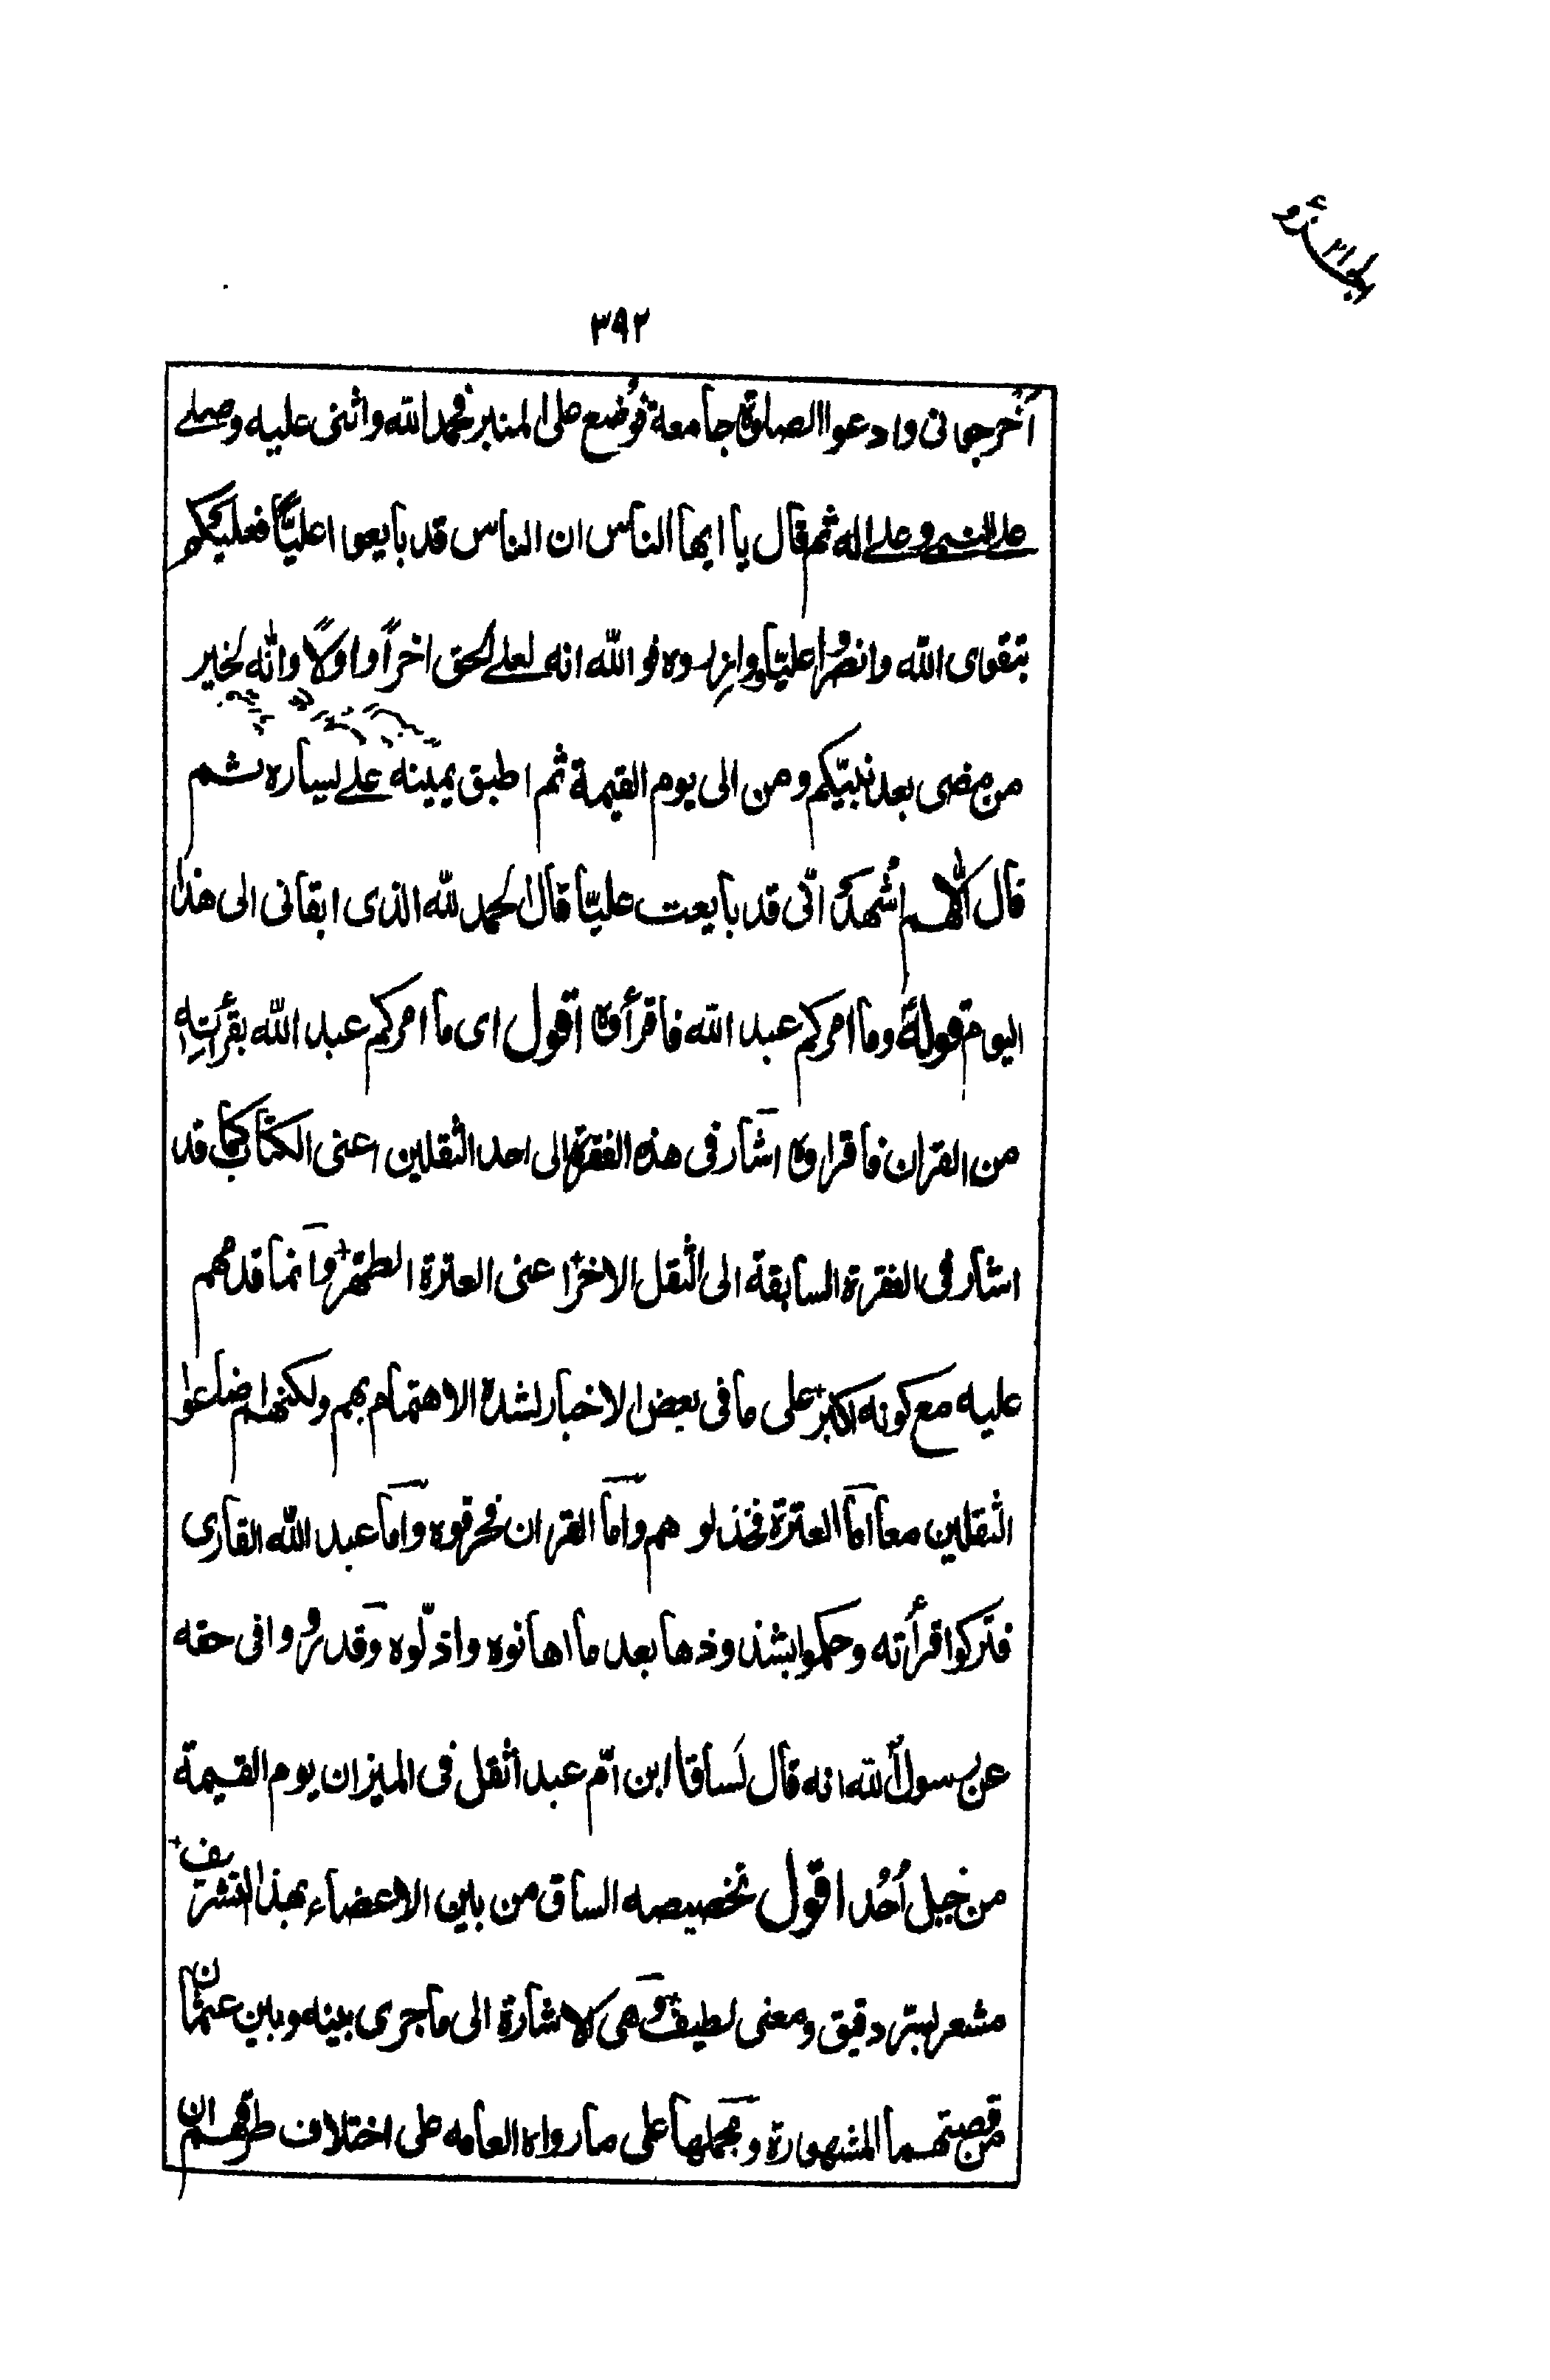 الجزؤ ٢١
٣٩٢
اُخرجانى وادعوا الصلوة جامعة فوُضع على المنبر فحمد الله واثنى عليه وصلے
علے النبے وعلے اله ثم قال يا ايها الناس ان الناس قد بايعوا عليّاً فعليكم
بتقوى الله وانصروا عليّا ووازِروه فو الله انه لعلے الحق اخراً واولاً وانّه لخير
من مضى بعد نبيّكم ومن الى يوم القيمة ثم اطبق يمينه علے يساره ثم
قال اللّهم اُشهدك انّى قد بايعت عليّا قال الحمد للّه الذى ابقانى الى هذا
اليوم قوله وما امركم عبد الله فاقرأوه اقول اى ما امركم عبد الله بقرأتِه
من القران فاقراوه اشار فى هذه الفقرة الى احد الثقلين اعنى الكتاب كما قد
اشار فى الفقرة السابقة الى الثقل الاخر اعنى العترة الطهر وانما قدمهم
عليه مع كونه اكبر على ما فى بعض الاخبار لشدة الاهتمام بهم ولكنهم ضاعوا
الثقلين معا امّا العترة فخذلو هم وامّا القران فحرقوه وامّا عبد الله القارى
فتركوا قرأته وحكموا بشذوذها بعد ما اهانوه واذلّوه وقد رووا فى حقه
عن رسول الله انه قال لَساقا ابن اُم عبد اثقل فى الميزان يوم القيمة
من جبل اُحُد اقول تخصيصه الساق من بين الاعضاء بهذا التشريف
مشعر بسّر دقيق ومعنى لطيف وهى كالاشارة الى ما جرى بينه وبين عثمان
من قصتهما المشهورة ومجملها على ما رواه العامه على اختلاف طرقهم ان